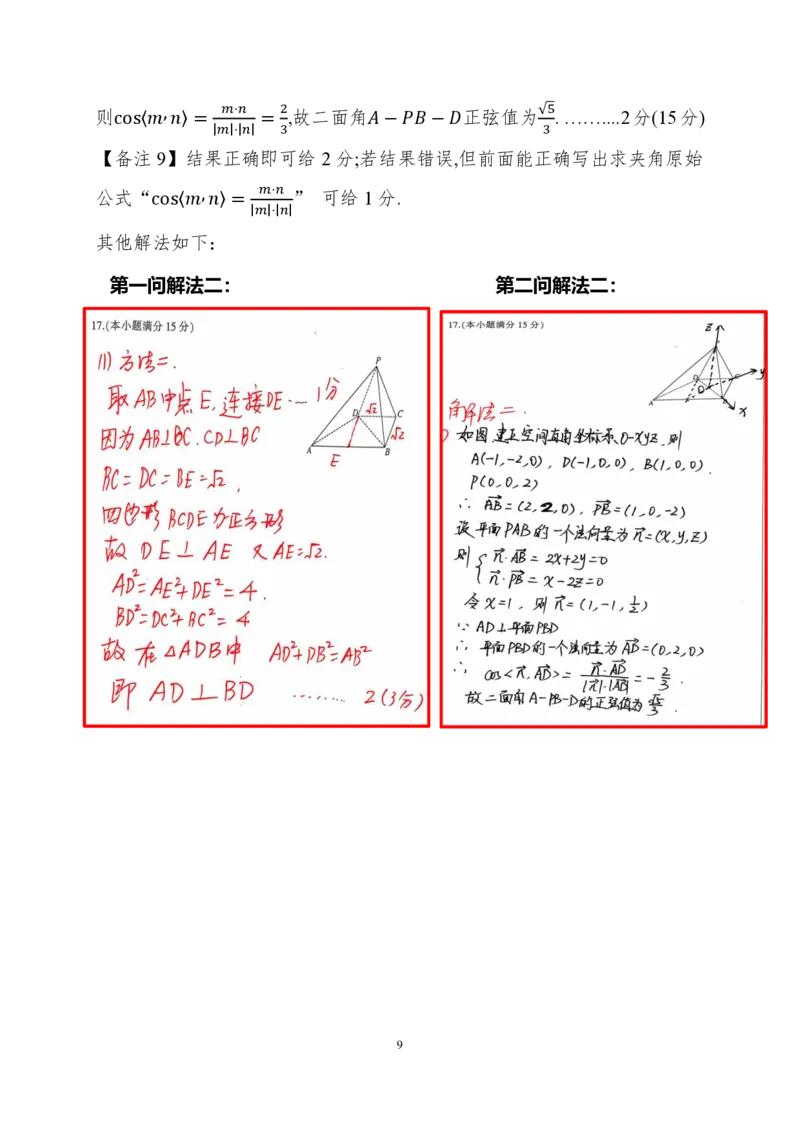 则cos⟨m,n⟩ = m·n/|m|·|n| = 2/3,故二面角A−PB−D正弦值为√5/3. ……...2分(15分)
【备注 9】结果正确即可给 2 分;若结果错误,但前面能正确写出求夹角原始
公式“cos⟨m,n⟩ = m·n/|m|·|n|” 可给 1 分.
其他解法如下:
第一问解法二:
17.(本小题满分15分)
(1) 方法二.
取AB中点E,连接DE····1分
因为AB⊥BC. CD⊥BC
BC=DC=BE=√2,
四边形BCDE为正方形
故 DE⊥AE 又AE=√2.
AD²=AE²+DE²=4.
BD²=DC²+BC²=4
故在△ADB中 AD²+DB²=AB²
即 AD⊥BD ········ 2(3分)
P
D √2 C
√2
A B
E
第二问解法二:
17.(本小题满分15分)
z
y
x
A
D
O
角解法二.
如图,建立空间直角坐标系O-xyz,则
A(-1,-2,0), D(-1,0,0), B(1,0,0).
P(0,0,2)
∴ AB=(2,2,0), PB=(1,0,-2)
设平面PAB的一个法向量为n=(x,y,z)
则{n·AB=2x+2y=0
n·PB=x-2z=0
令x=1,则n=(1,-1,1/2)
∵ AD⊥平面PBD
∴ 平面PBD的一个法向量为AD=(0,2,0)
∴ cos<n,AD>= n·AD/|n|·|AD| =-2/3.
故二面角A-PB-D的正弦值为√5/3.
9